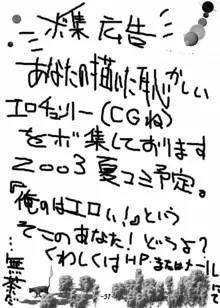 ボ集広告
あなたの描いた恥かしい
エロチョリー(CGね)
をボ集しております
2003夏コミ予定。
『俺のはエロい!』という
そこのあなた!どうよ?
くわしくはHP.またはメールにて
…無茶
-37-